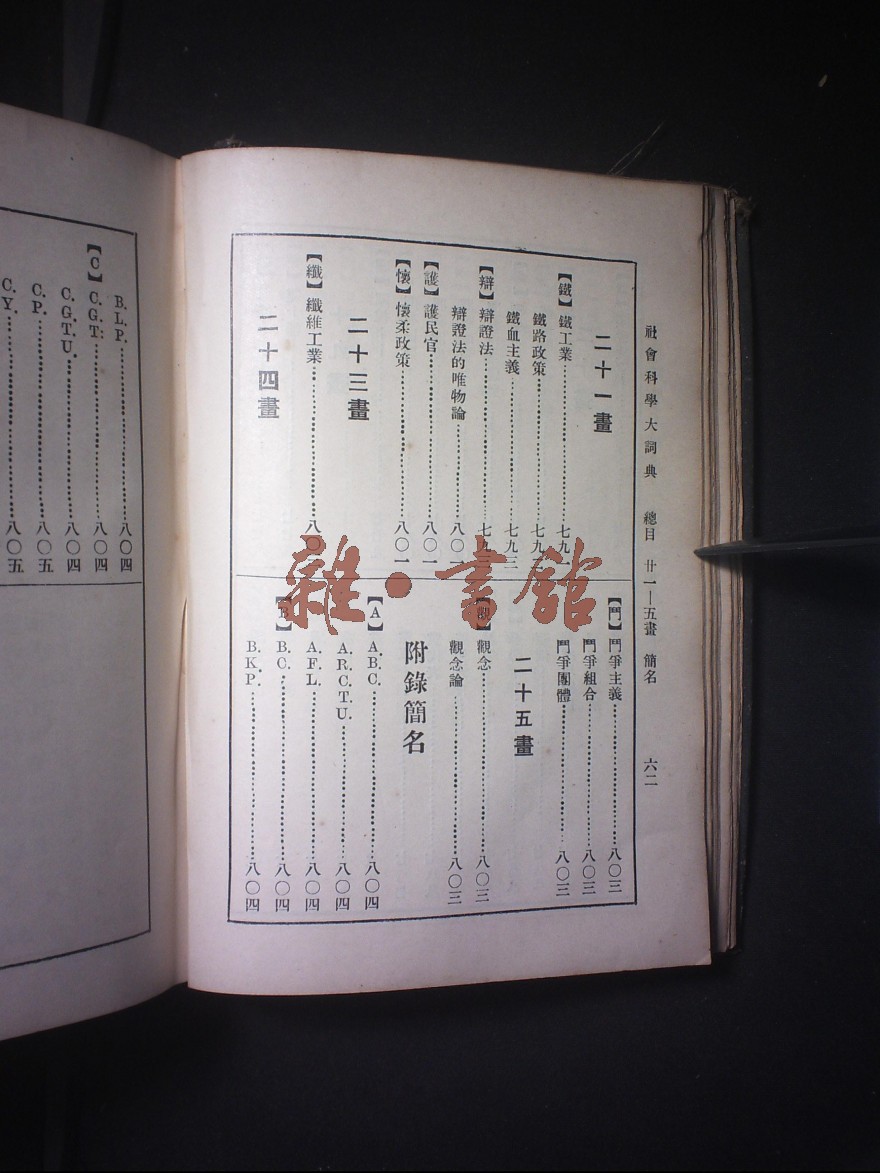 社會科學大詞典 總目 廿一—五畫 簡名 六二
二十一畫
【鐵】鐵工業⋯⋯七九
鐵路政策⋯⋯七九
鐵血主義⋯⋯七九三
【辯】辯證法⋯⋯七九
辯證法的唯物論⋯⋯八〇
【護】護民官⋯⋯八〇一
【懷】懷柔政策⋯⋯八〇一
二十三畫
【纖】纖維工業⋯⋯八〇
二十四畫
【鬥】鬥爭主義⋯⋯八〇三
鬥爭組合⋯⋯八〇三
鬥爭團體⋯⋯八〇三
二十五畫
【觀】觀念⋯⋯八〇三
觀念論⋯⋯八〇三
附錄簡名
【A】A.B.C.⋯⋯八〇四
A.R.C.T.U.⋯⋯八〇四
A.F.L.⋯⋯八〇四
【B】B.C.⋯⋯八〇四
B.K.P.⋯⋯八〇四
B.L.P.⋯⋯八〇四
【C】C.G.T.⋯⋯八〇四
C.G.T.U.⋯⋯八〇四
C.P.⋯⋯八〇五
C.Y.⋯⋯八〇五
雜·書館